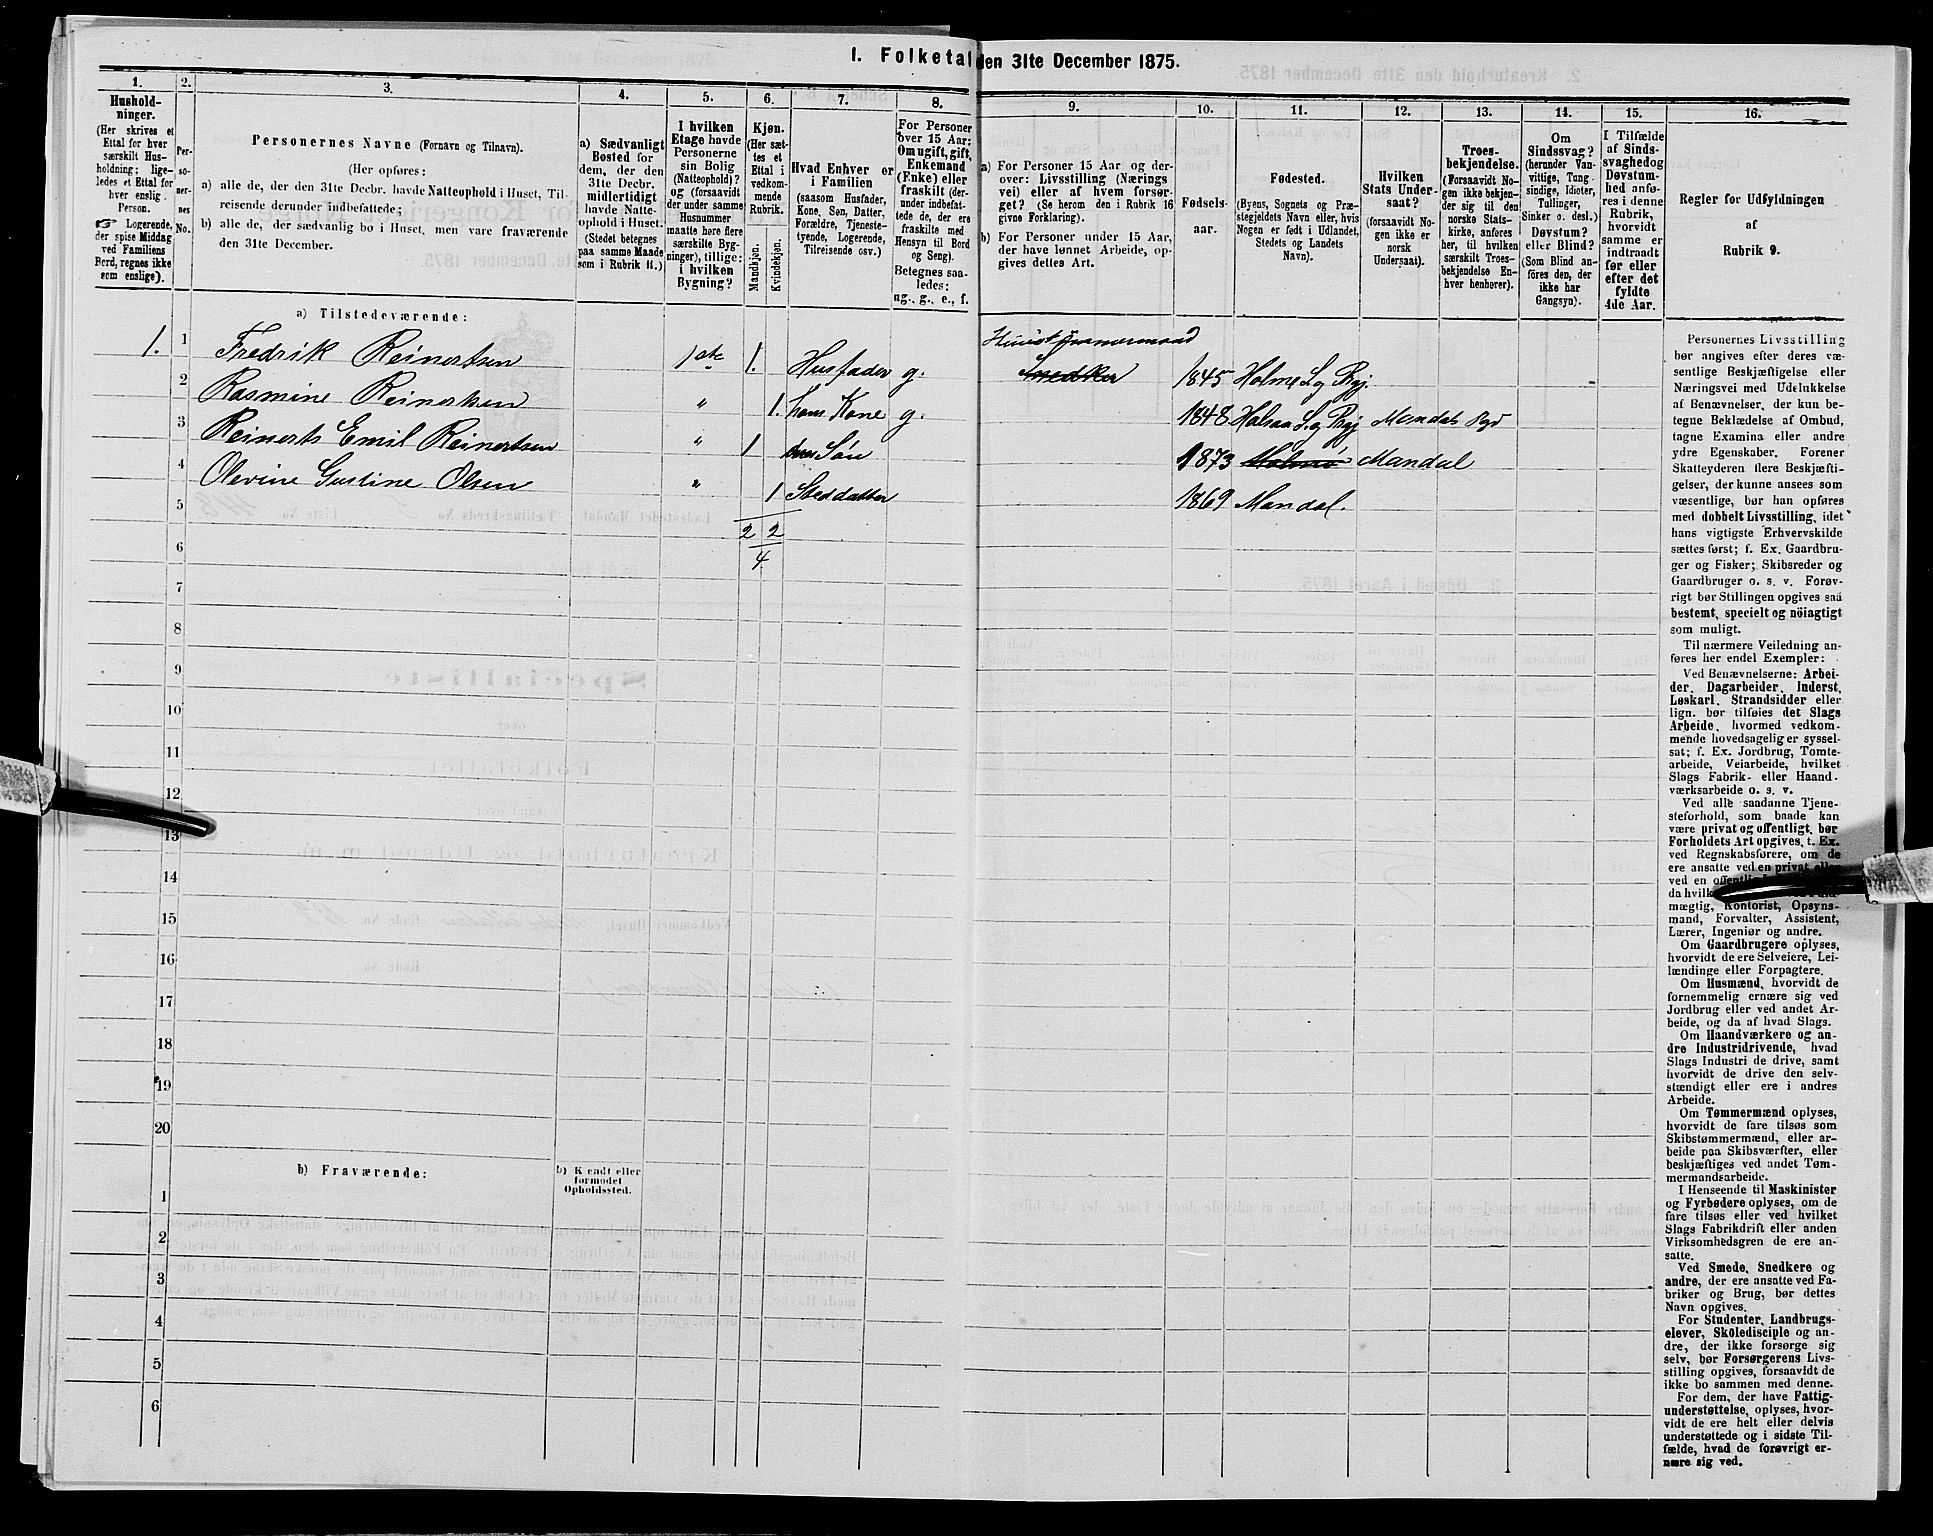 I. Folketal den 31te December 1875.
1.
Hushold-
ninger.
(Her skrives et
Ettal for hver
særskilt Hus-
holdning; lige-
ledes et Ettal for
hver enslig
Person.
☞ Logerende,
der spise Middag
ved Familiens
Bord, regnes ikke
som enslige).
2.
Per-
so-
ner-
nes
No.
3.
Personernes Navne (Fornavn og Tilnavn).
(Her opføres:
a) alle de, der den 31te Decbr. havde Natteophold i Huset, Til-
reisende derunder indbefattede;
b) alle de, der sædvanlig bo i Huset, men vare fraværende
den 31te December.
4.
a) Sædvanligt
Bosted for
dem, der den
31te Decbr.
midlertidigt
havde Natte-
ophold i Huset.
(Stedet betegnes
paa samme Maade
som i Rubrik 11.)
5.
I hvilken
Etage havde
Personerne
sin Bolig
(Natteophold)?
og (forsaavidt
der under samme
Husnummer
maatte høre flere
særskilte Byg-
ninger), tillige:
i hvilken
Bygning?
6.
Kjøn.
(Her sæt-
tes et
Ettal i
vedkom-
mende
Rubrik.
Mandkjøn.
Kvindekjøn.
7.
Hvad Enhver er
i Familien
(saasom Husfader,
Kone, Søn, Datter,
Forældre, Tjeneste-
tyende, Logerende,
Tilreisende osv.)
8.
For Personer
over 15 Aar:
Om ugift, gift,
Enkemand
(Enke) eller
fraskilt (der-
under indbefat-
tede de, der ere
fraskilte med
Hensyn til Bord
og Seng).
Betegnes saa-
ledes:
ug., g., e., f.
9.
a) For Personer 15 Aar og der-
over: Livsstilling (Nærings
vei) eller af hvem forsør-
get? (Se herom den i Rubrik 16
givne Forklaring).
b) For Personer under 15 Aar,
der have lønnet Arbeide, op-
gives dettes Art.
10.
Fødsels-
aar.
11.
Fødested.
(Byens, Sognets og Præ-
stegjeldets Navn eller, hvis
Nogen er født i Udlandet,
Stedets og Landets
Navn).
12.
Hvilken
Stats Under-
saat?
(forsaavidt No-
gen ikke er
norsk
Undersaat).
13.
Troes-
bekjendelse.
(Forsaavidt No-
gen ikke bekjen-
der sig til den
norske Stats-
kirke, anføres
her, til hvilken
særskilt Troes-
bekjendelse En-
hver henhører).
14.
Om
Sindssvag?
(herunder Van-
vittige, Tung-
sindige, Idioter,
Tullinger,
Sinker o. desl.)
Døvstum?
eller Blind?
(Som Blind an-
føres den, der
ikke har
Gangsyn).
15.
I Tilfælde
af Sinds-
svaghed og
Døvstum-
hed anfø-
res i denne
Rubrik,
hvorvidt
samme er
indtraadt
før eller
efter det
fyldte
4de Aar.
16.
Regler for Udfyldningen
af
Rubrik 9.
a) Tilstedeværende:
1. 1 Fredrik Reinertsen 1ste 1. Husfader g. Snedker 1845 Holme S. og Pgj.
2 Rasmine Reinertsen " 1. hans Kone g. 1848 Halsaa S. og Pgj Mandal
3 Reinerts Emil Reinertsen " 1 deres Søn 1873 Holme Mandal
4 Olevine Gustine Olsen " 1 Steddatter 1869 Mandal.
5 2 2
6 4.
7
8
9
10
11
12
13
14
15
16
17
18
19
20
b) Fraværende:
b) Kjendt eller
formodet
Opholdssted.
1
2
3
4
5
6
Personernes Livsstilling
bør angives efter deres væ-
sentlige Beskjæftigelse eller
Næringsvei med Udelukkelse
af Benævnelser, der kun be-
tegne Beklædelse af Ombud,
tagne Examina eller andre
ydre Egenskaber. Forener
Skatteyderen flere Beskjæfti-
gelser, der kunne ansees som
væsentlige, bør han opføres
med dobbelt Livsstilling, idet
hans vigtigste Erhvervskilde
sættes først; f. Ex. Gaardbru-
ger og Fisker; Skibsreder og
Gaardbruger o. s. v. Forøv-
rigt bør Stillingen opgives saa
bestemt, specielt og nöiagtigt
som muligt.
Til nærmere Veiledning an-
føres her endel Exempler:
Ved Benævnelserne: Arbei-
der, Dagarbeider, Inderst,
Løskarl, Strandsidder eller
lign. bør tilføies det Slags
Arbeide, hvormed vedkom-
mende hovedsagelig er syssel-
sat; f. Ex. Jordbrug, Tomte-
arbeide, Veiarbeide, hvilket
Slags Fabrik- eller Haand-
værksarbeide o. s. v.
Ved alle saadanne Tjene-
steforhold, som baade kan
være privat og offentligt, bør
Forholdets Art opgives, t. Ex.
ved Regnskabsførere, om de
ere ansatte ved en privat eller
ved en
da hvilk
mægtig, Kontorist, Opsyns-
mand, Forvalter, Assistent,
Lærer, Ingeniør og andre.
Om Gaardbrugere oplyses,
hvorvidt de ere Selveiere, Lei-
lændinge eller Forpagtere.
Om Husmænd, hvorvidt de
fornemmelig ernære sig ved
Jordbrug eller ved andet Ar-
beide, og da af hvad Slags.
Om Haandværkere og an-
dre Industridrivende, hvad
Slags Industri de drive, samt
hvorvidt de drive den selv-
stændigt eller ere i andres
Arbeide.
Om Tømmermænd oplyses,
hvorvidt de fare tilsøs som
Skibstømmermænd, eller ar-
beide paa Skibsværfter, eller
beskjæftiges ved andet Tøm-
mermandsarbeide.
I Henseende til Maskinister
og Fyrbødere oplyses, om de
fare tilsøs eller ved hvilket
Slags Fabrikdrift eller anden
Virksomhedsgren de ere an-
satte.
Ved Smede, Snedkere og
andre, der ere ansatte ved Fa-
briker og Brug, bør dettes
Navn opgives.
For Studenter, Landbrugs-
elever, Skoledisciple og an-
dre, der ikke forsørge sig
selv, bør Forsørgerens Livs-
stilling opgives, forsaavidt de
ikke bo sammen med denne.
For dem, der have Fattig-
understøttelse, oplyses, hvor-
vidt de ere helt eller delvis
understøttede og i sidste Til-
fælde, hvad de forøvrigt er-
nære sig ved.